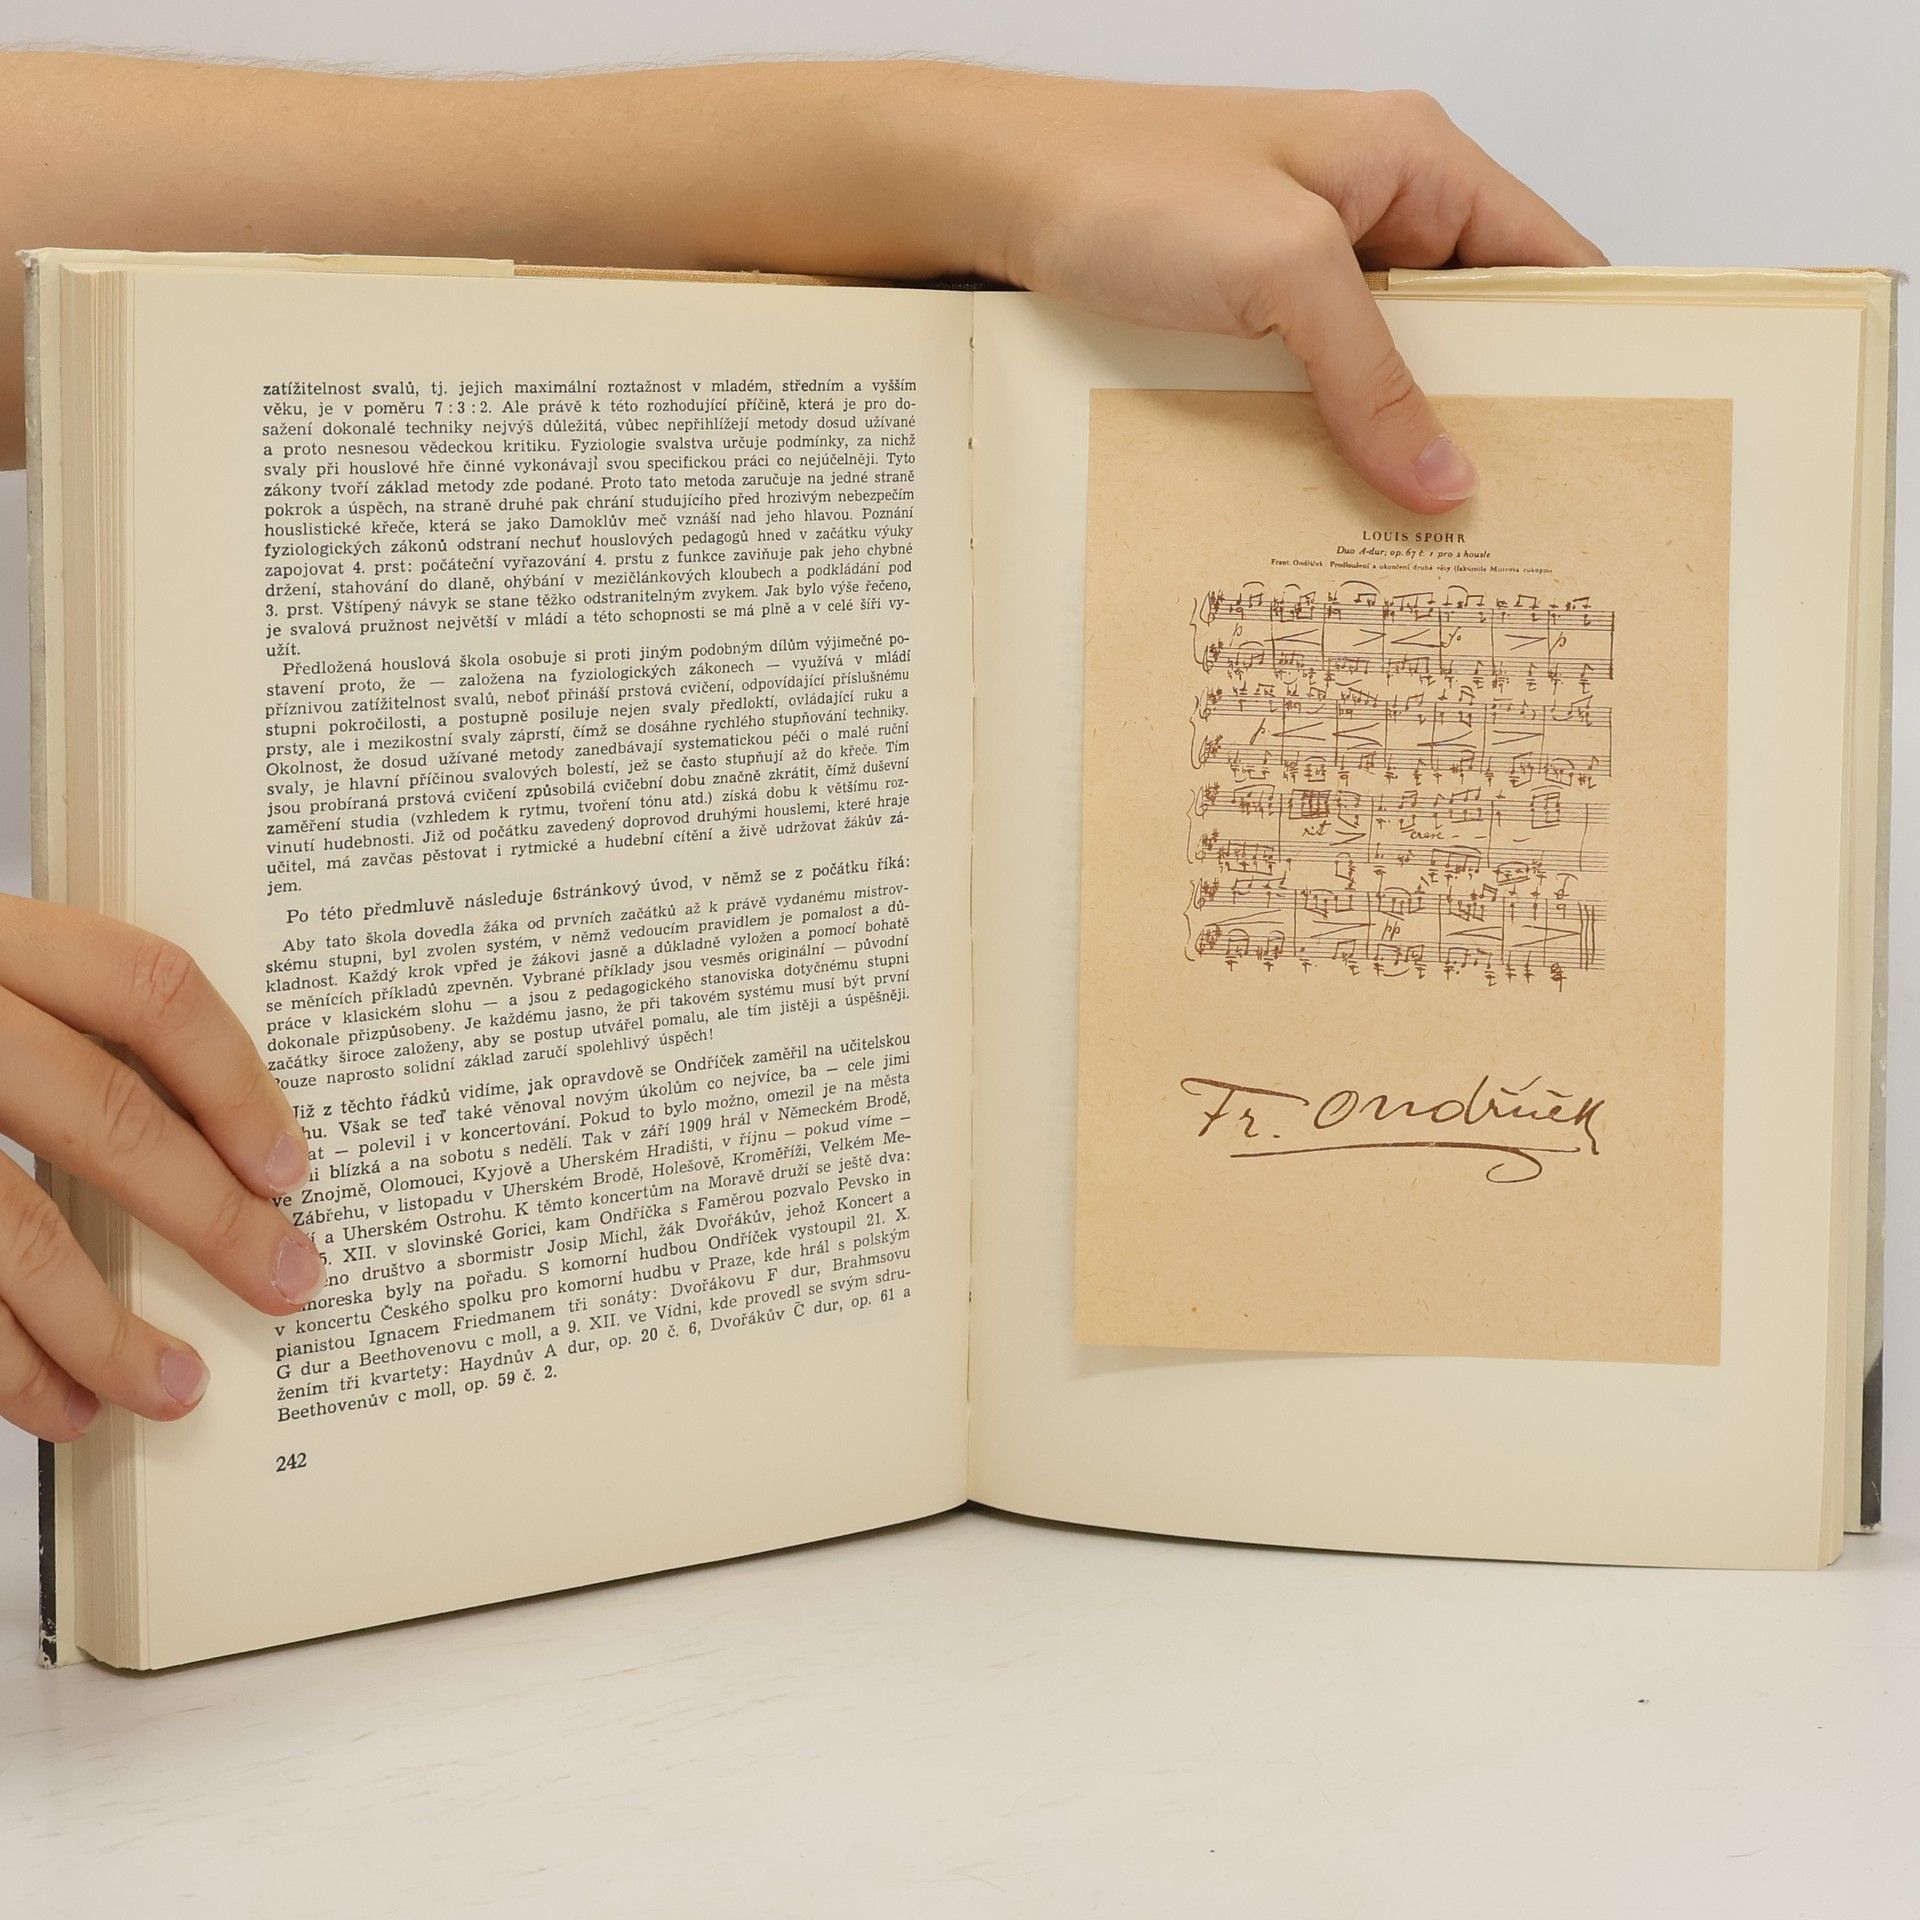 zatížitelnost svalů, tj. jejich maximální roztažnost v mladém, středním a vyšším
věku, je v poměru 7 : 3 : 2. Ale právě k této rozhodující příčině, která je pro do-
sažení dokonalé techniky nejvýš důležitá, vůbec nepřihlížejí metody dosud užívané
a proto nesnesou vědeckou kritiku. Fyziologie svalstva určuje podmínky, za nichž
svaly při houslové hře činné vykonávají svou specifickou práci co nejúčelněji. Tyto
zákony tvoří základ metody zde podané. Proto tato metoda zaručuje na jedné straně
pokrok a úspěch, na straně druhé pak chrání studujícího před hrozivým nebezpečím
houslistické křeče, která se jako Damoklův meč vznáší nad jeho hlavou. Poznání
fyziologických zákonů odstraní nechuť houslových pedagogů hned v začátku výuky
zapojovat 4. prst: počáteční vyřazování 4. prstu z funkce zaviňuje pak jeho chybné
držení, stahování do dlaně, ohýbání v mezičlánkových kloubech a podkládání pod
3. prst. Vštípený návyk se stane těžko odstranitelným zvykem. Jak bylo výše řečeno,
je svalová pružnost největší v mládí a této schopnosti se má plně a v celé šíři vy-
užít.
Předložená houslová škola osobuje si proti jiným podobným dílům výjimečné po-
stavení proto, že — založena na fyziologických zákonech — využívá v mládí
příznivou zatížitelnost svalů, neboť přináší prstová cvičení, odpovídající příslušnému
stupni pokročilosti, a postupně posiluje nejen svaly předloktí, ovládající ruku a
prsty, ale i mezikostní svaly záprstí, čímž se dosáhne rychlého stupňování techniky.
Okolnost, že dosud užívané metody zanedbávají systematickou péči o malé ruční
svaly, je hlavní příčinou svalových bolestí, jež se často stupňují až do křeče. Tím
jsou probíraná prstová cvičení způsobilá cvičební dobu značně zkrátit, čímž duševní
zaměření studia (vzhledem k rytmu, tvoření tónu atd.) získá dobu k většímu roz-
vinutí hudebnosti. Již od počátku zavedený doprovod druhými houslemi, které hraje
učitel, má zavčas pěstovat i rytmické a hudební cítění a živě udržovat žákův zá-
jem.
Po této předmluvě následuje 6stránkový úvod, v němž se z počátku říká:
Aby tato škola dovedla žáka od prvních začátků až k právě vydanému mistrov-
skému stupni, byl zvolen systém, v němž vedoucím pravidlem je pomalost a dů-
kladnost. Každý krok vpřed je žákovi jasně a důkladně vyložen a pomocí bohatě
se měnících příkladů zpevněn. Vybrané příklady jsou vesměs originální — původní
práce v klasickém slohu — a jsou z pedagogického stanoviska dotyčnému stupni
dokonale přizpůsobeny. Je každému jasno, že při takovém systému musí být první
začátky široce založeny, aby se postup utvářel pomalu, ale tím jistěji a úspěšněji.
Pouze naprosto solidní základ zaručí spolehlivý úspěch!
Již z těchto řádků vidíme, jak opravdově se Ondříček zaměřil na učitelskou
Však se teď také věnoval novým úkolům co nejvíce, ba — cele jimi
— polevil i v koncertování. Pokud to bylo možno, omezil je na města
blízká a na sobotu s nedělí. Tak v září 1909 hrál v Německém Brodě,
ve Znojmě, Olomouci, Kyjově a Uherském Hradišti, v říjnu — pokud víme —
Zábřehu, v listopadu v Uherském Brodě, Holešově, Kroměříži, Velkém Me-
a Uherském Ostrohu. K těmto koncertům na Moravě druží se ještě dva:
5. XII. v slovinské Gorici, kam Ondříčka s Faměrou pozvalo Pevsko in
družtvo a sbormistr Josip Michl, žák Dvořákův, jehož Koncert a
byly na pořadu. S komorní hudbou Ondříček vystoupil 21. X.
v koncertu Českého spolku pro komorní hudbu v Praze, kde hrál s polským
pianistou Ignacem Friedmanem tři sonáty: Dvořákovu F dur, Brahmsovu
G dur a Beethovenovu c moll, a 9. XII. ve Vídni, kde provedl se svým sdru-
žením tři kvartety: Haydnův A dur, op. 20 č. 6, Dvořákův C dur, op. 61 a
Beethovenův c moll, op. 59 č. 2.
242
LOUIS SPOHR
Duo A-dur; op. 67 č. 1 pro 2 housle
Frant. Ondříček: Prodloužení a ukončení druhé věty (faksimile Mistrova rukopisu
p p
p
rit cresc - -
pp
Fr. Ondříček